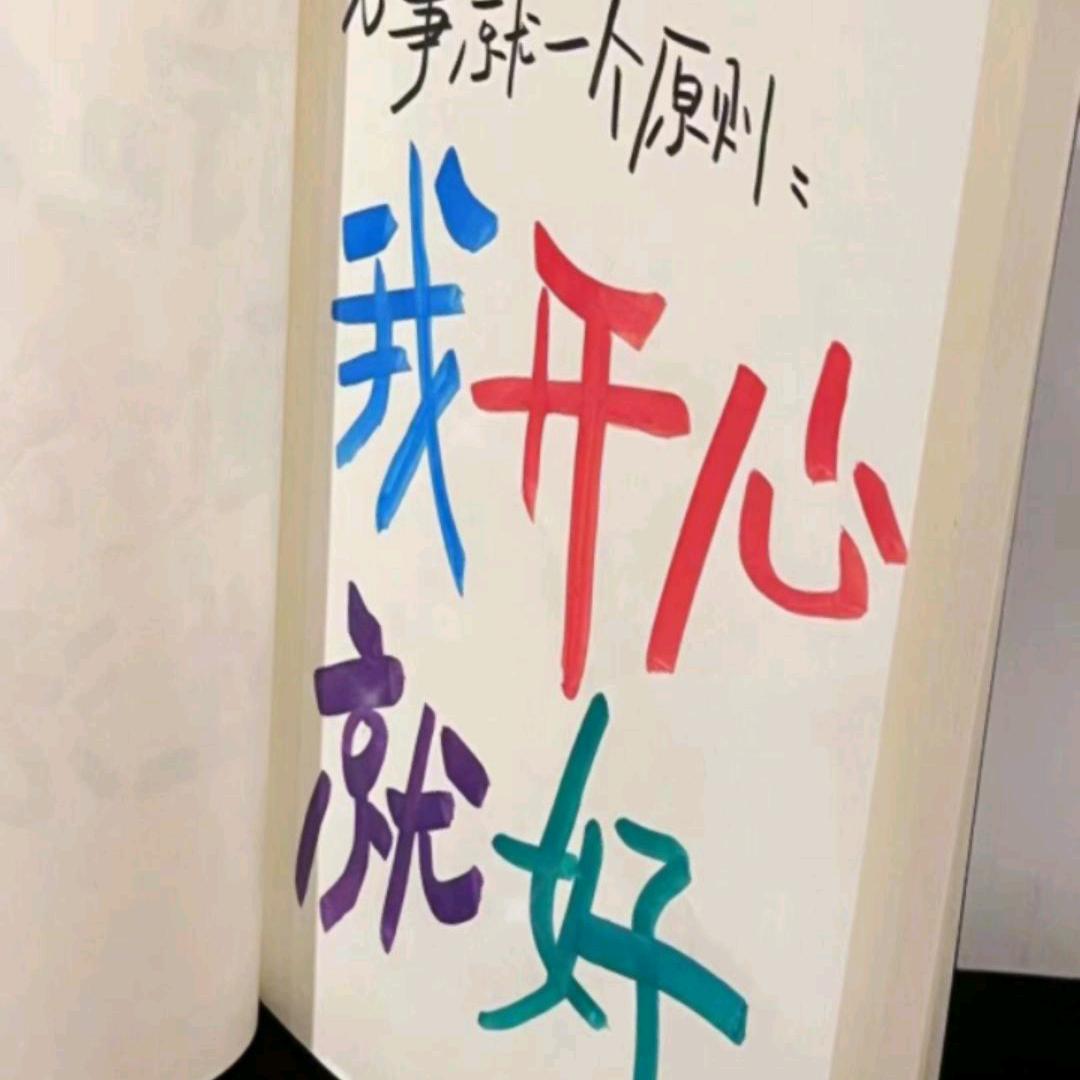 凡事就一个原则：
我开心
就好